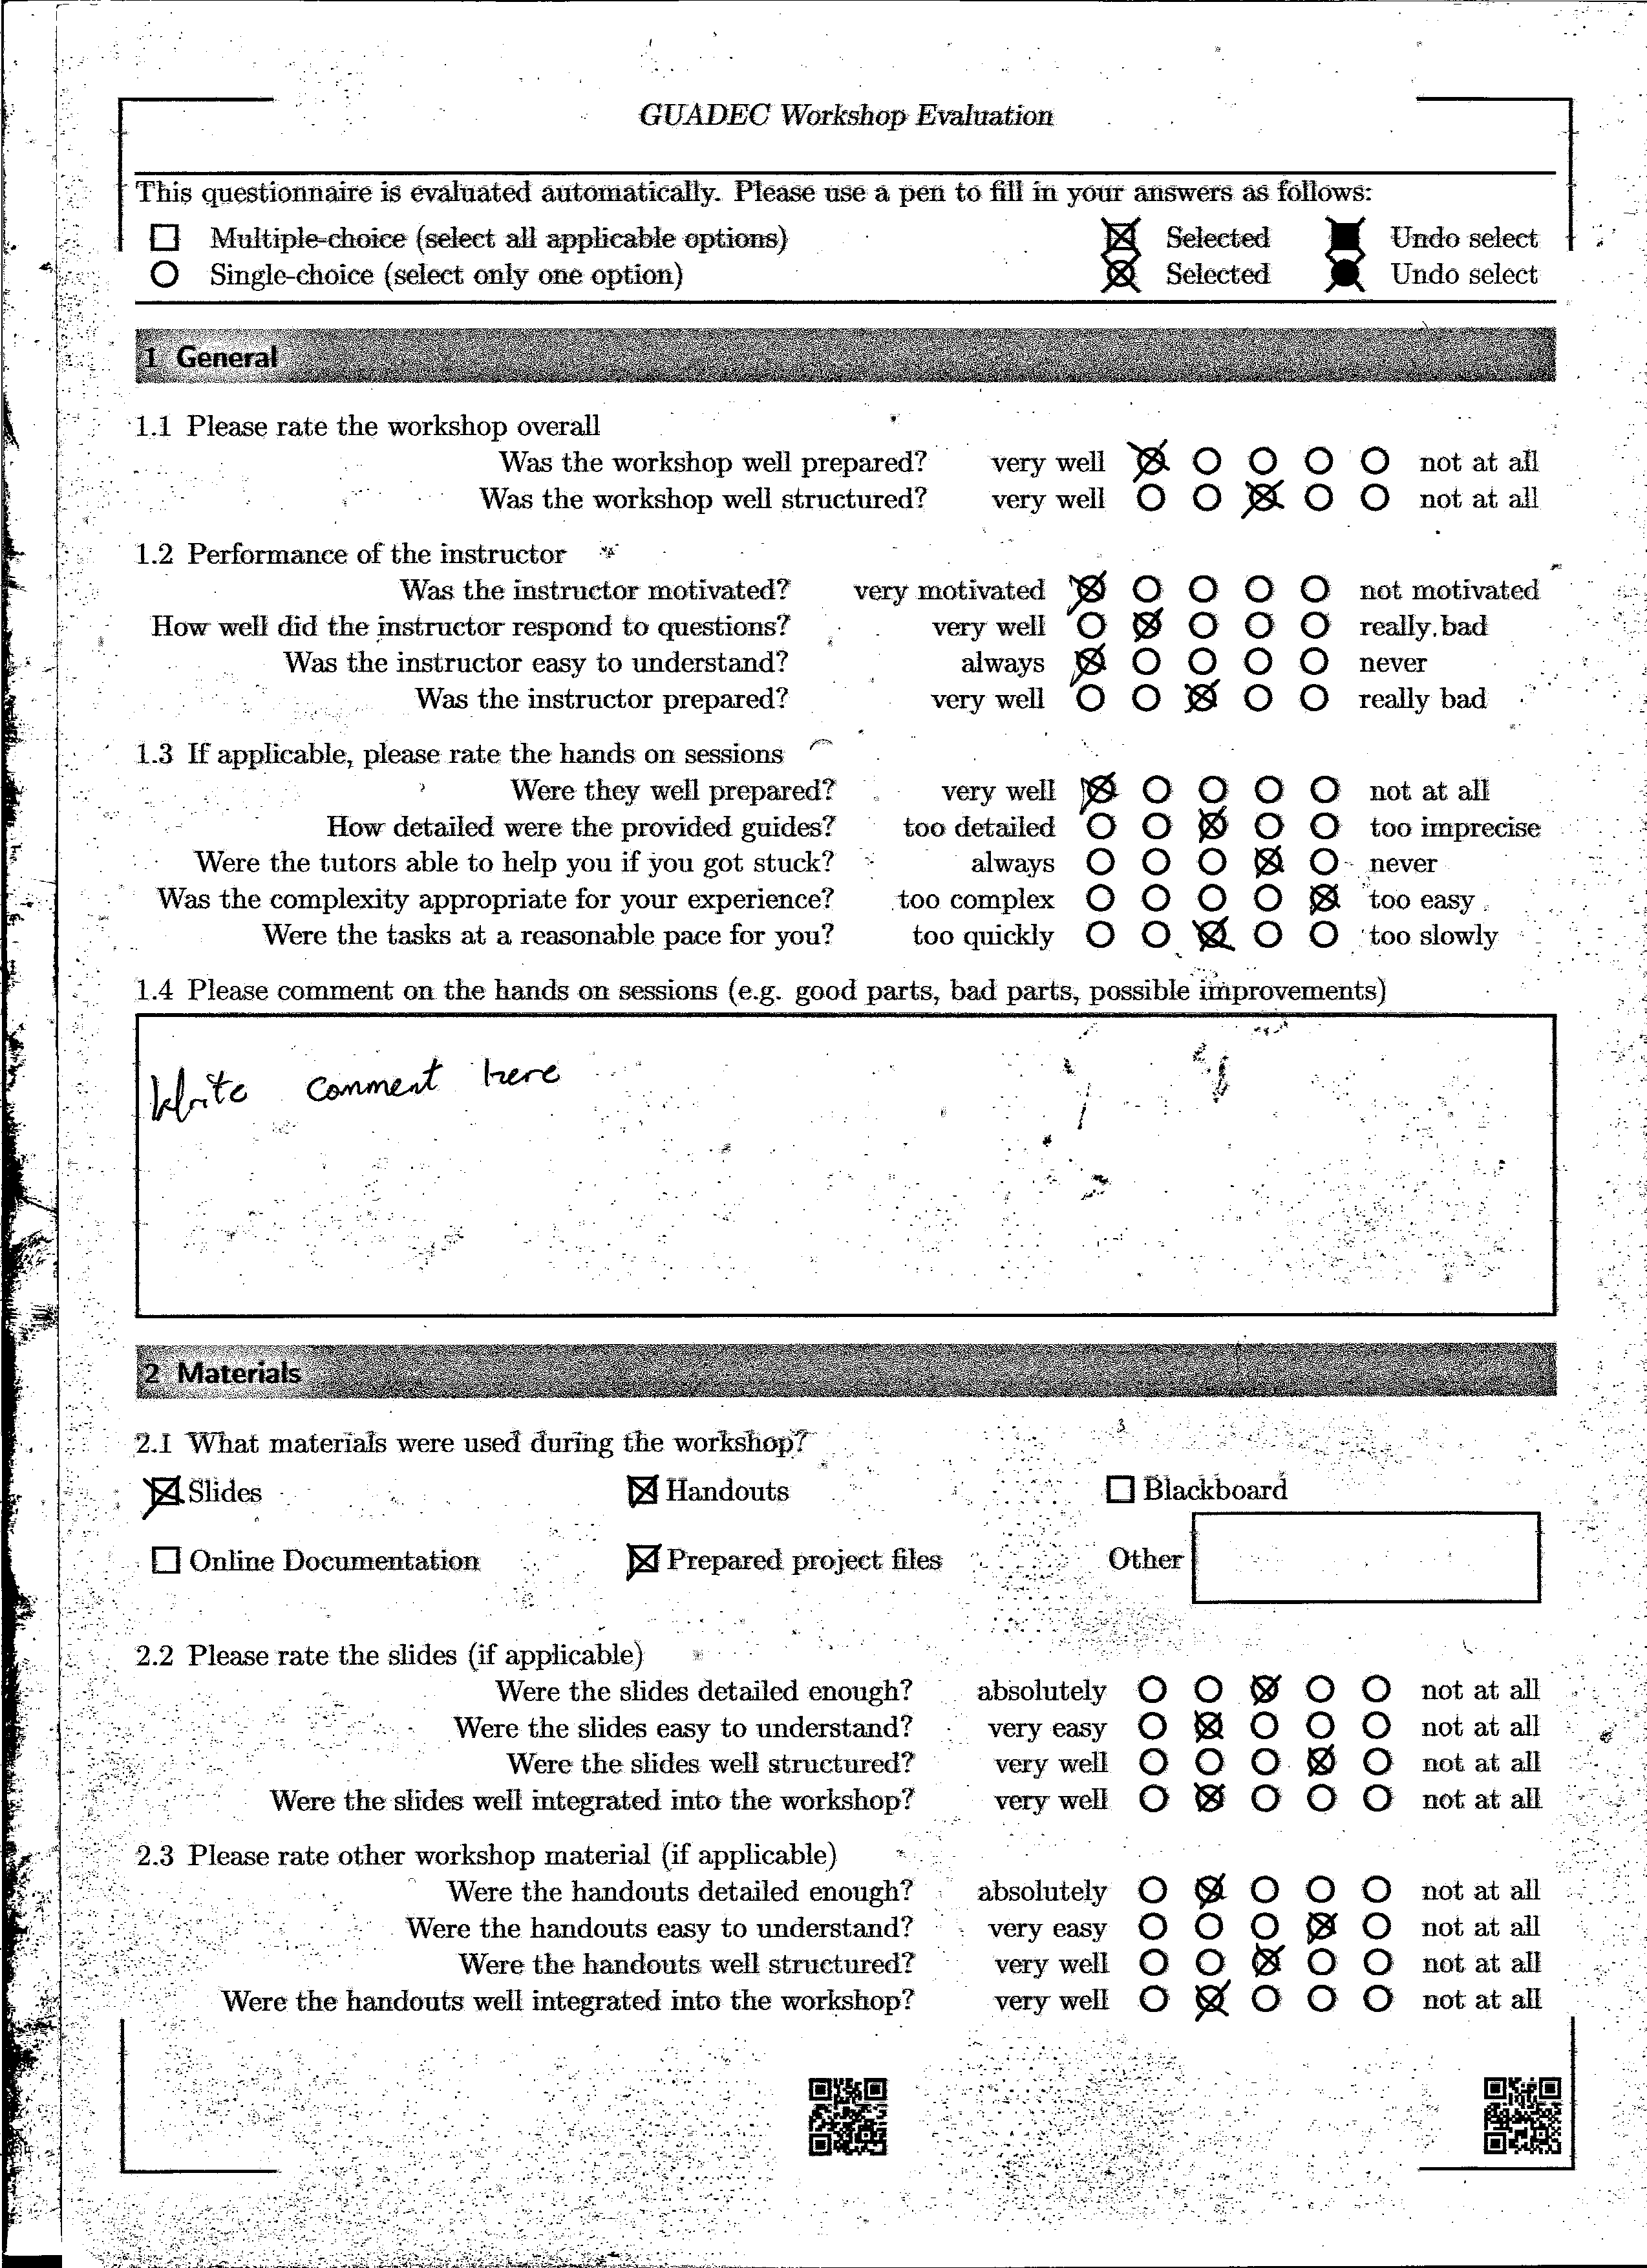 GUADEC Workshop Evaluation
This questionnaire is evaluated automatically. Please use a pen to fill in your answers as follows:
Multiple-choice (select all applicable options) Selected Undo select
Single-choice (select only one option) Selected Undo select
1 General
1.1 Please rate the workshop overall
Was the workshop well prepared? very well not at all
Was the workshop well structured? very well not at all
1.2 Performance of the instructor
Was the instructor motivated? very motivated not motivated
How well did the instructor respond to questions? very well really bad
Was the instructor easy to understand? always never
Was the instructor prepared? very well really bad
1.3 If applicable, please rate the hands on sessions
Were they well prepared? very well not at all
How detailed were the provided guides? too detailed too imprecise
Were the tutors able to help you if you got stuck? always never
Was the complexity appropriate for your experience? too complex too easy
Were the tasks at a reasonable pace for you? too quickly too slowly
1.4 Please comment on the hands on sessions (e.g. good parts, bad parts, possible improvements)
Write comment here
2 Materials
2.1 What materials were used during the workshop?
Slides Handouts Blackboard
Online Documentation Prepared project files Other
2.2 Please rate the slides (if applicable)
Were the slides detailed enough? absolutely not at all
Were the slides easy to understand? very easy not at all
Were the slides well structured? very well not at all
Were the slides well integrated into the workshop? very well not at all
2.3 Please rate other workshop material (if applicable)
Were the handouts detailed enough? absolutely not at all
Were the handouts easy to understand? very easy not at all
Were the handouts well structured? very well not at all
Were the handouts well integrated into the workshop? very well not at all